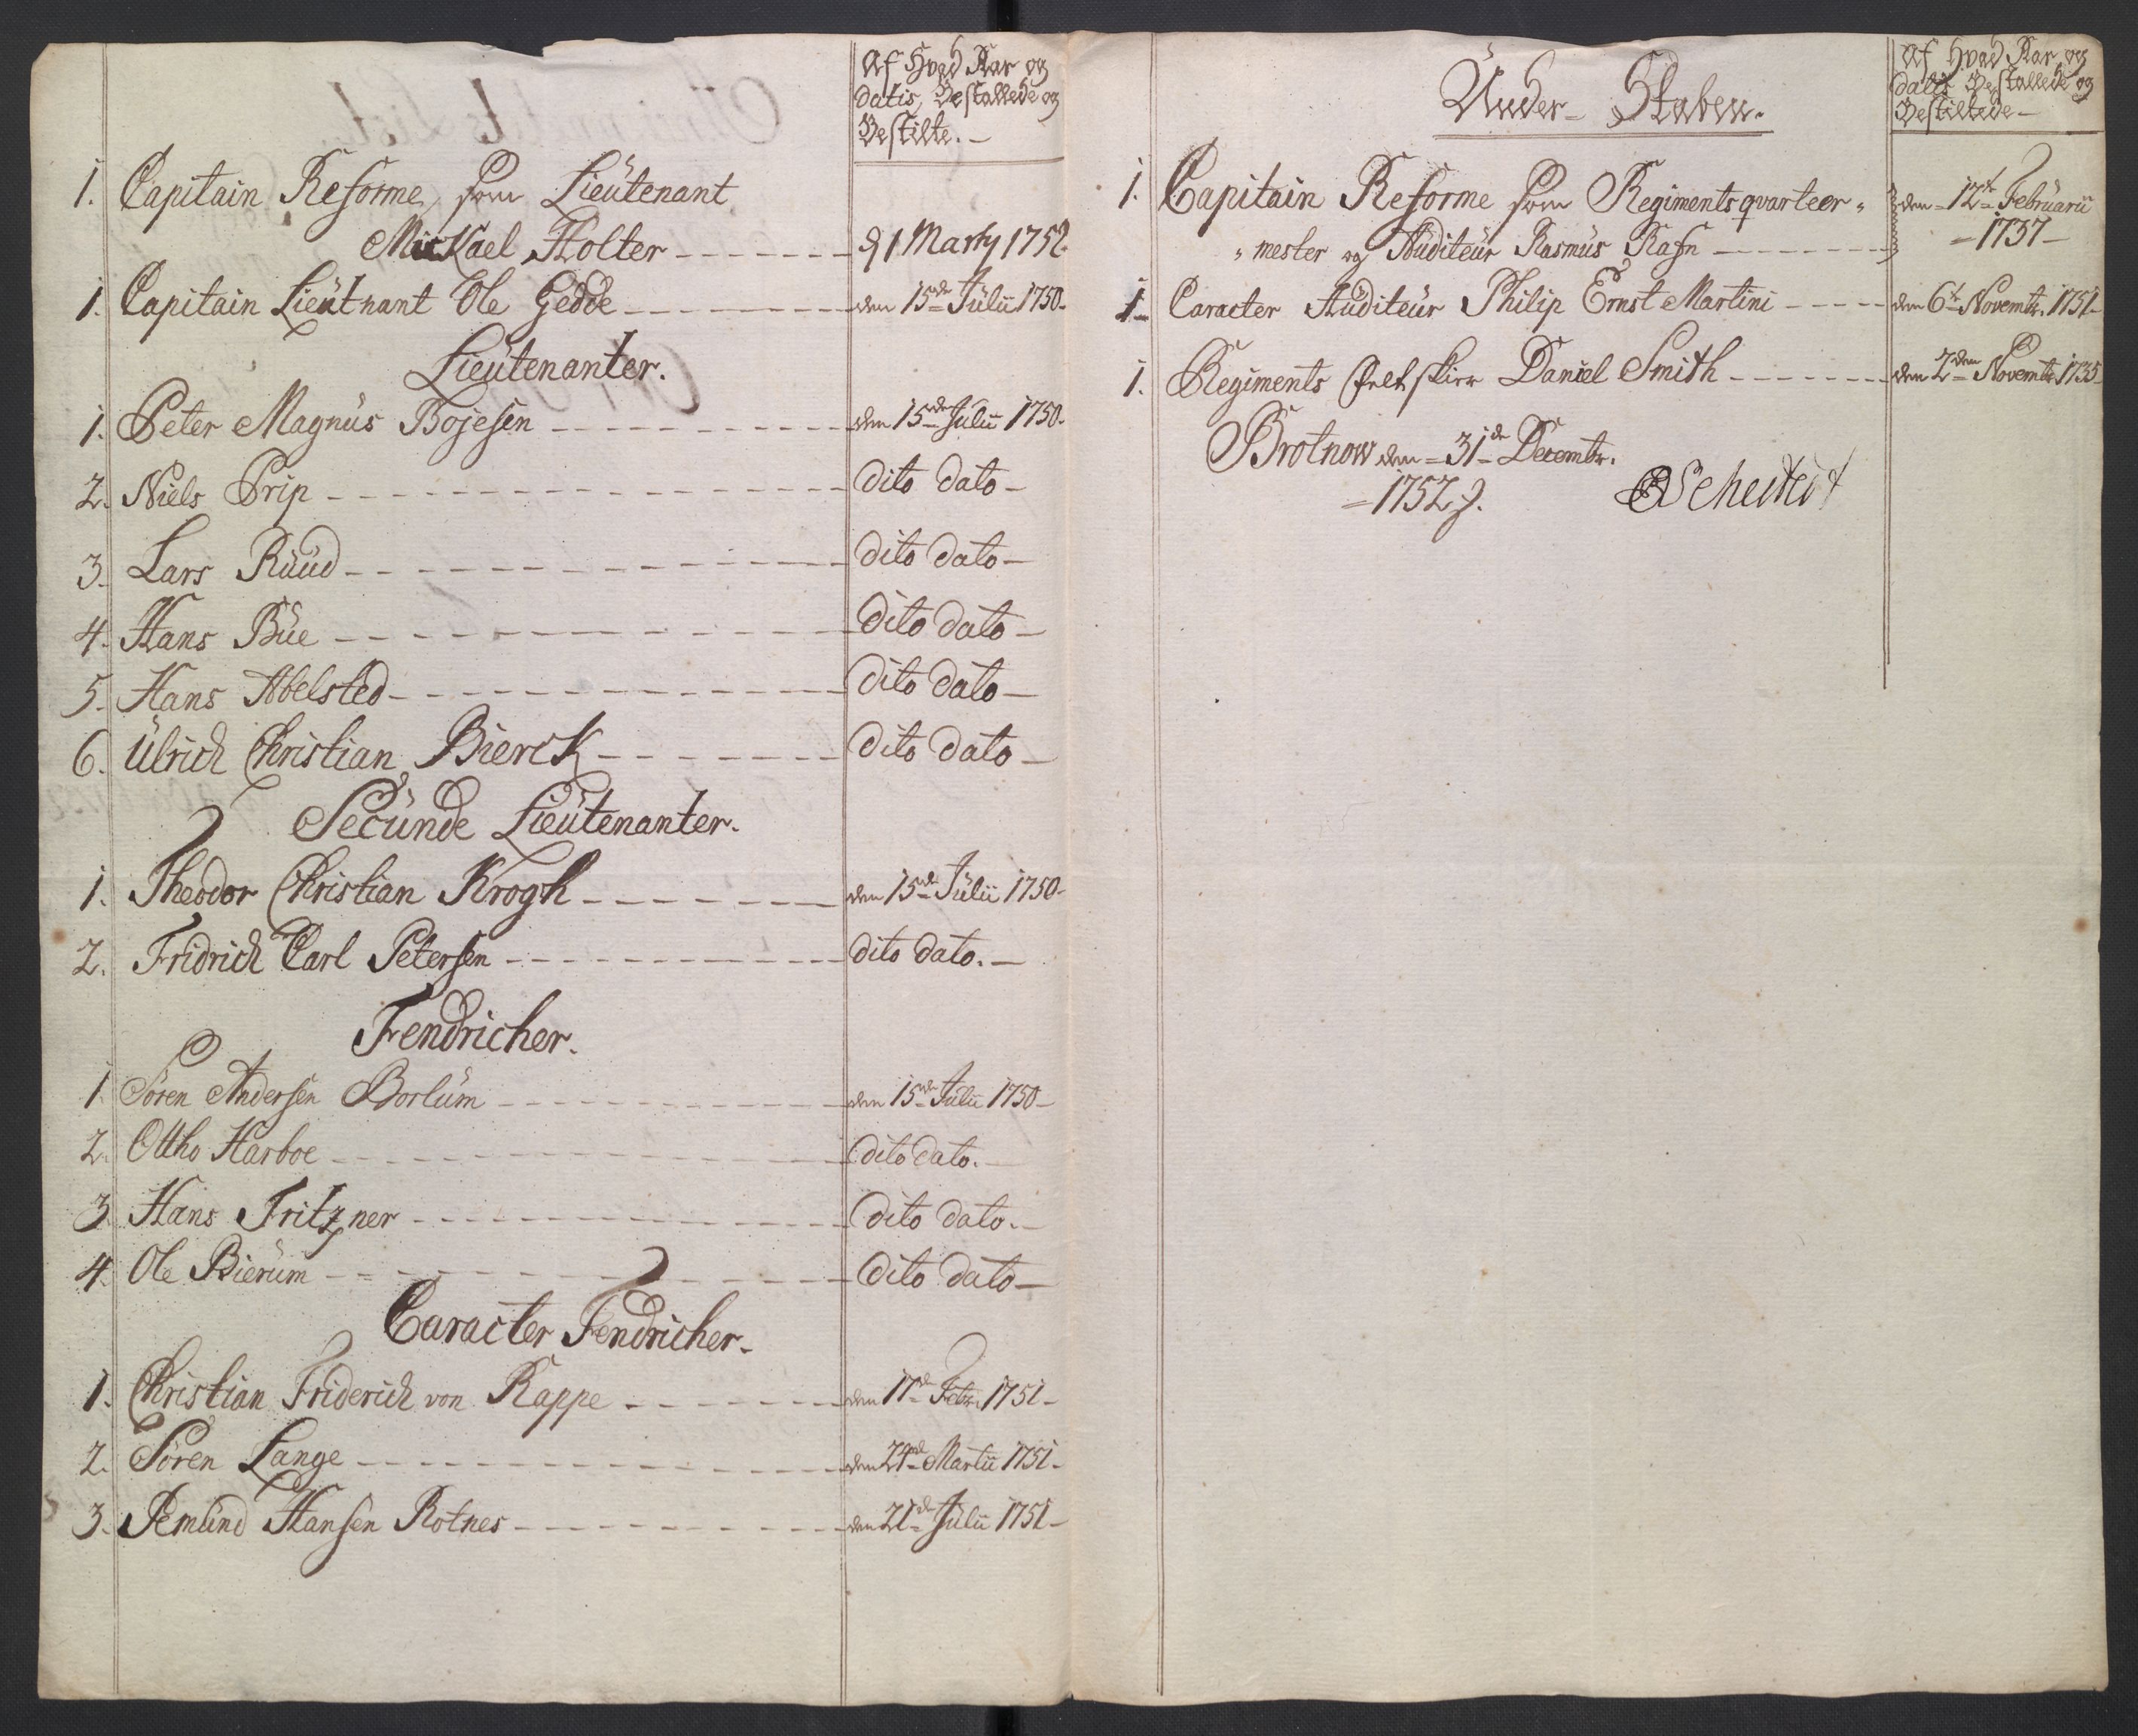 Af Hvad Aar og
datis, Bestallede og
Bestilte.-
1. Capitain Reforme, som Lieütenant
Mickael Holter - - - - - - - d 1 Marty 1752.
1. Capitain Lieütnant Ole Gedde - - - - - - - den 15de Jülii 1750.
Lieütenanter.
1. Peter Magnüs Bojesen - - - - - - - den 15de Jülii 1750.
2. Niels Prip - - - - - - - dito dato -
3. Lars Rüüd - - - - - - - dito dato -
4. Hans Büe - - - - - - - dito dato -
5. Hans Abelsted - - - - - - - dito dato -
6. Ülrich Christian Bierck - - - - - - - dito dato -
Secünde Lieütenanter.
1. Theodor Christian Krogh - - - - - - - den 15de Jülii 1750-
2. Fridrich Carl Petersen - - - - - - - dito dato. -
Fendricher.
1. Sören Andersen Borlüm - - - - - - - den 15de Jülii 1750-
2. Ottho Harboe - - - - - - - dito dato. -
3. Hans Fritzner - - - - - - - dito dato. -
4. Ole Bierüm - - - - - - - dito dato -
Caracter Fendricher.
1. Christian Friderich von Rappe - - - - - - - den 17de Febr. 1751-
2. Sören Lange - - - - - - - den 24de Martii 1751-
3. Amünd Hansen Rotnes - - - - - - - den 21de Jülii 1751-
Ünder- Staben.
Af Hvad Aar og
datis Bestallede og
Bestiltede -
1. Capitain Reforme som Regimentsqvarteer- den - 12te Februarii
mester og Aüditeür Rasmüs Rafn - - - - - - - - 1737 -
1. Caracter Aüditeür Philip Ernst Martini - - - - den 6te Novembr. 1751-
1. Regiments Feltskier Daniel Smith - - - - - - - den 2den Novembr 1735-
Brotnow den - 31de Decembr.
- 1752.